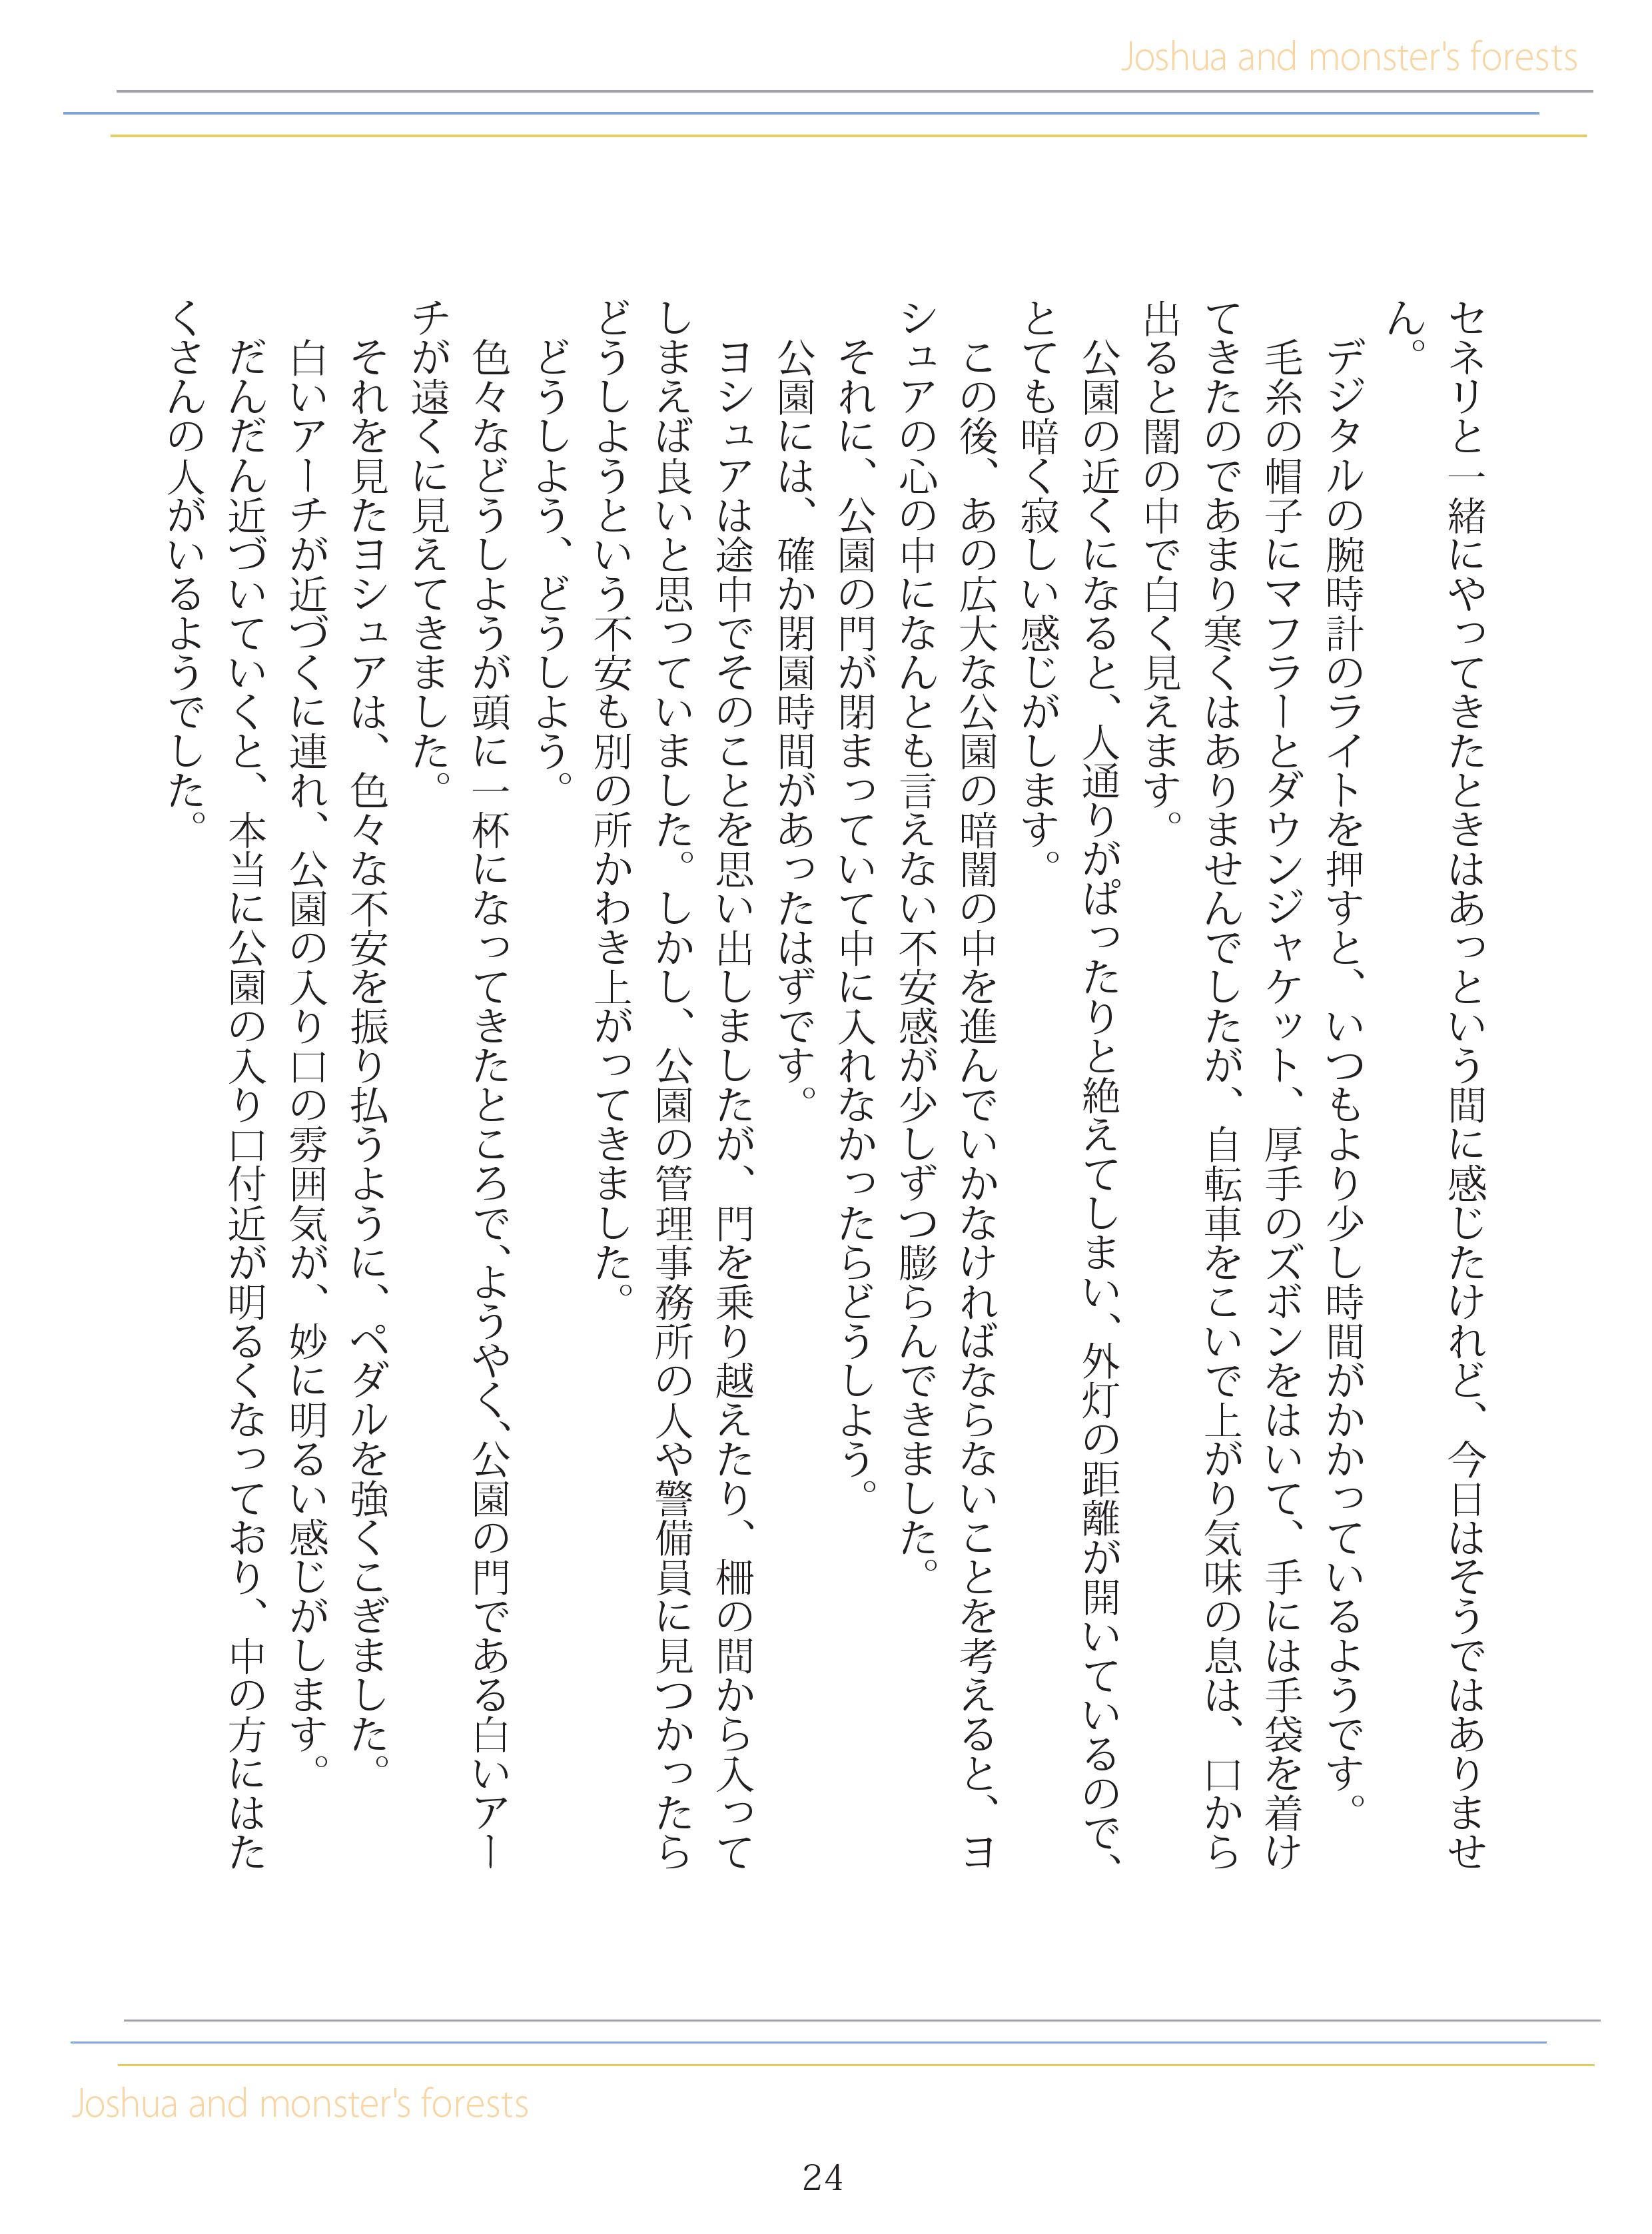 Joshua and monster's forests
セネリと一緒にやってきたときはあっという間に感じたけれど、今日はそうではありませ
ん。
デジタルの腕時計のライトを押すと、いつもより少し時間がかかっているようです。
毛糸の帽子にマフラーとダウンジャケット、厚手のズボンをはいて、手には手袋を着け
てきたのであまり寒くはありませんでしたが、自転車をこいで上がり気味の息は、口から
出ると闇の中で白く見えます。
公園の近くになると、人通りがぱったりと絶えてしまい、外灯の距離が開いているので、
とても暗く寂しい感じがします。
この後、あの広大な公園の暗闇の中を進んでいかなければならないことを考えると、ヨ
シュアの心の中になんとも言えない不安感が少しずつ膨らんできました。
それに、公園の門が閉まっていて中に入れなかったらどうしよう。
公園には、確か閉園時間があったはずです。
ヨシュアは途中でそのことを思い出しましたが、門を乗り越えたり、柵の間から入って
しまえば良いと思っていました。しかし、公園の管理事務所の人や警備員に見つかったら
どうしようという不安も別の所かわき上がってきました。
どうしよう、どうしよう。
色々などうしようが頭に一杯になってきたところで、ようやく、公園の門である白いアー
チが遠くに見えてきました。
それを見たヨシュアは、色々な不安を振り払うように、ペダルを強くこぎました。
白いアーチが近づくに連れ、公園の入り口の雰囲気が、妙に明るい感じがします。
だんだん近づいていくと、本当に公園の入り口付近が明るくなっており、中の方にはた
くさんの人がいるようでした。
Joshua and monster's forests
24